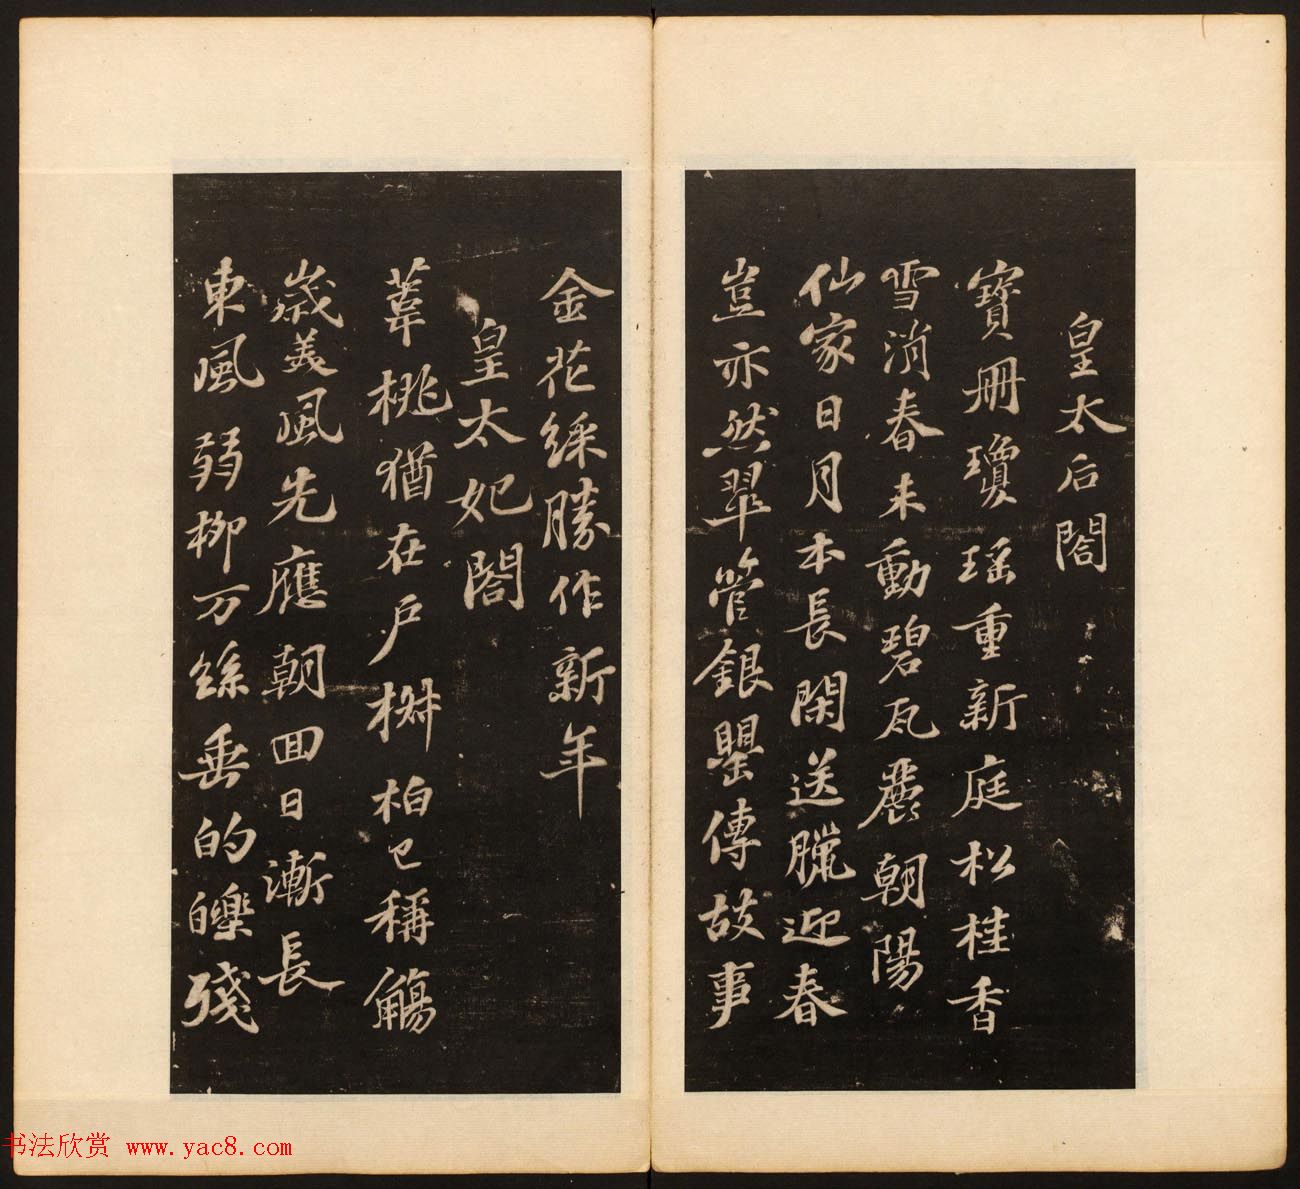 皇太后閤
寶冊瓊瑶重新庭松桂香
雪消春未動碧瓦麗朝陽
仙家日月本長閑送臘迎春
豈亦然翠管銀罌傳故事
金花綵勝作新年
皇太妃閤
葦桃猶在戶椒柏已稱觴
歲美風先應朝回日漸長
東風弱柳万絲垂的皪殘
书法欣赏 www.yac8.com